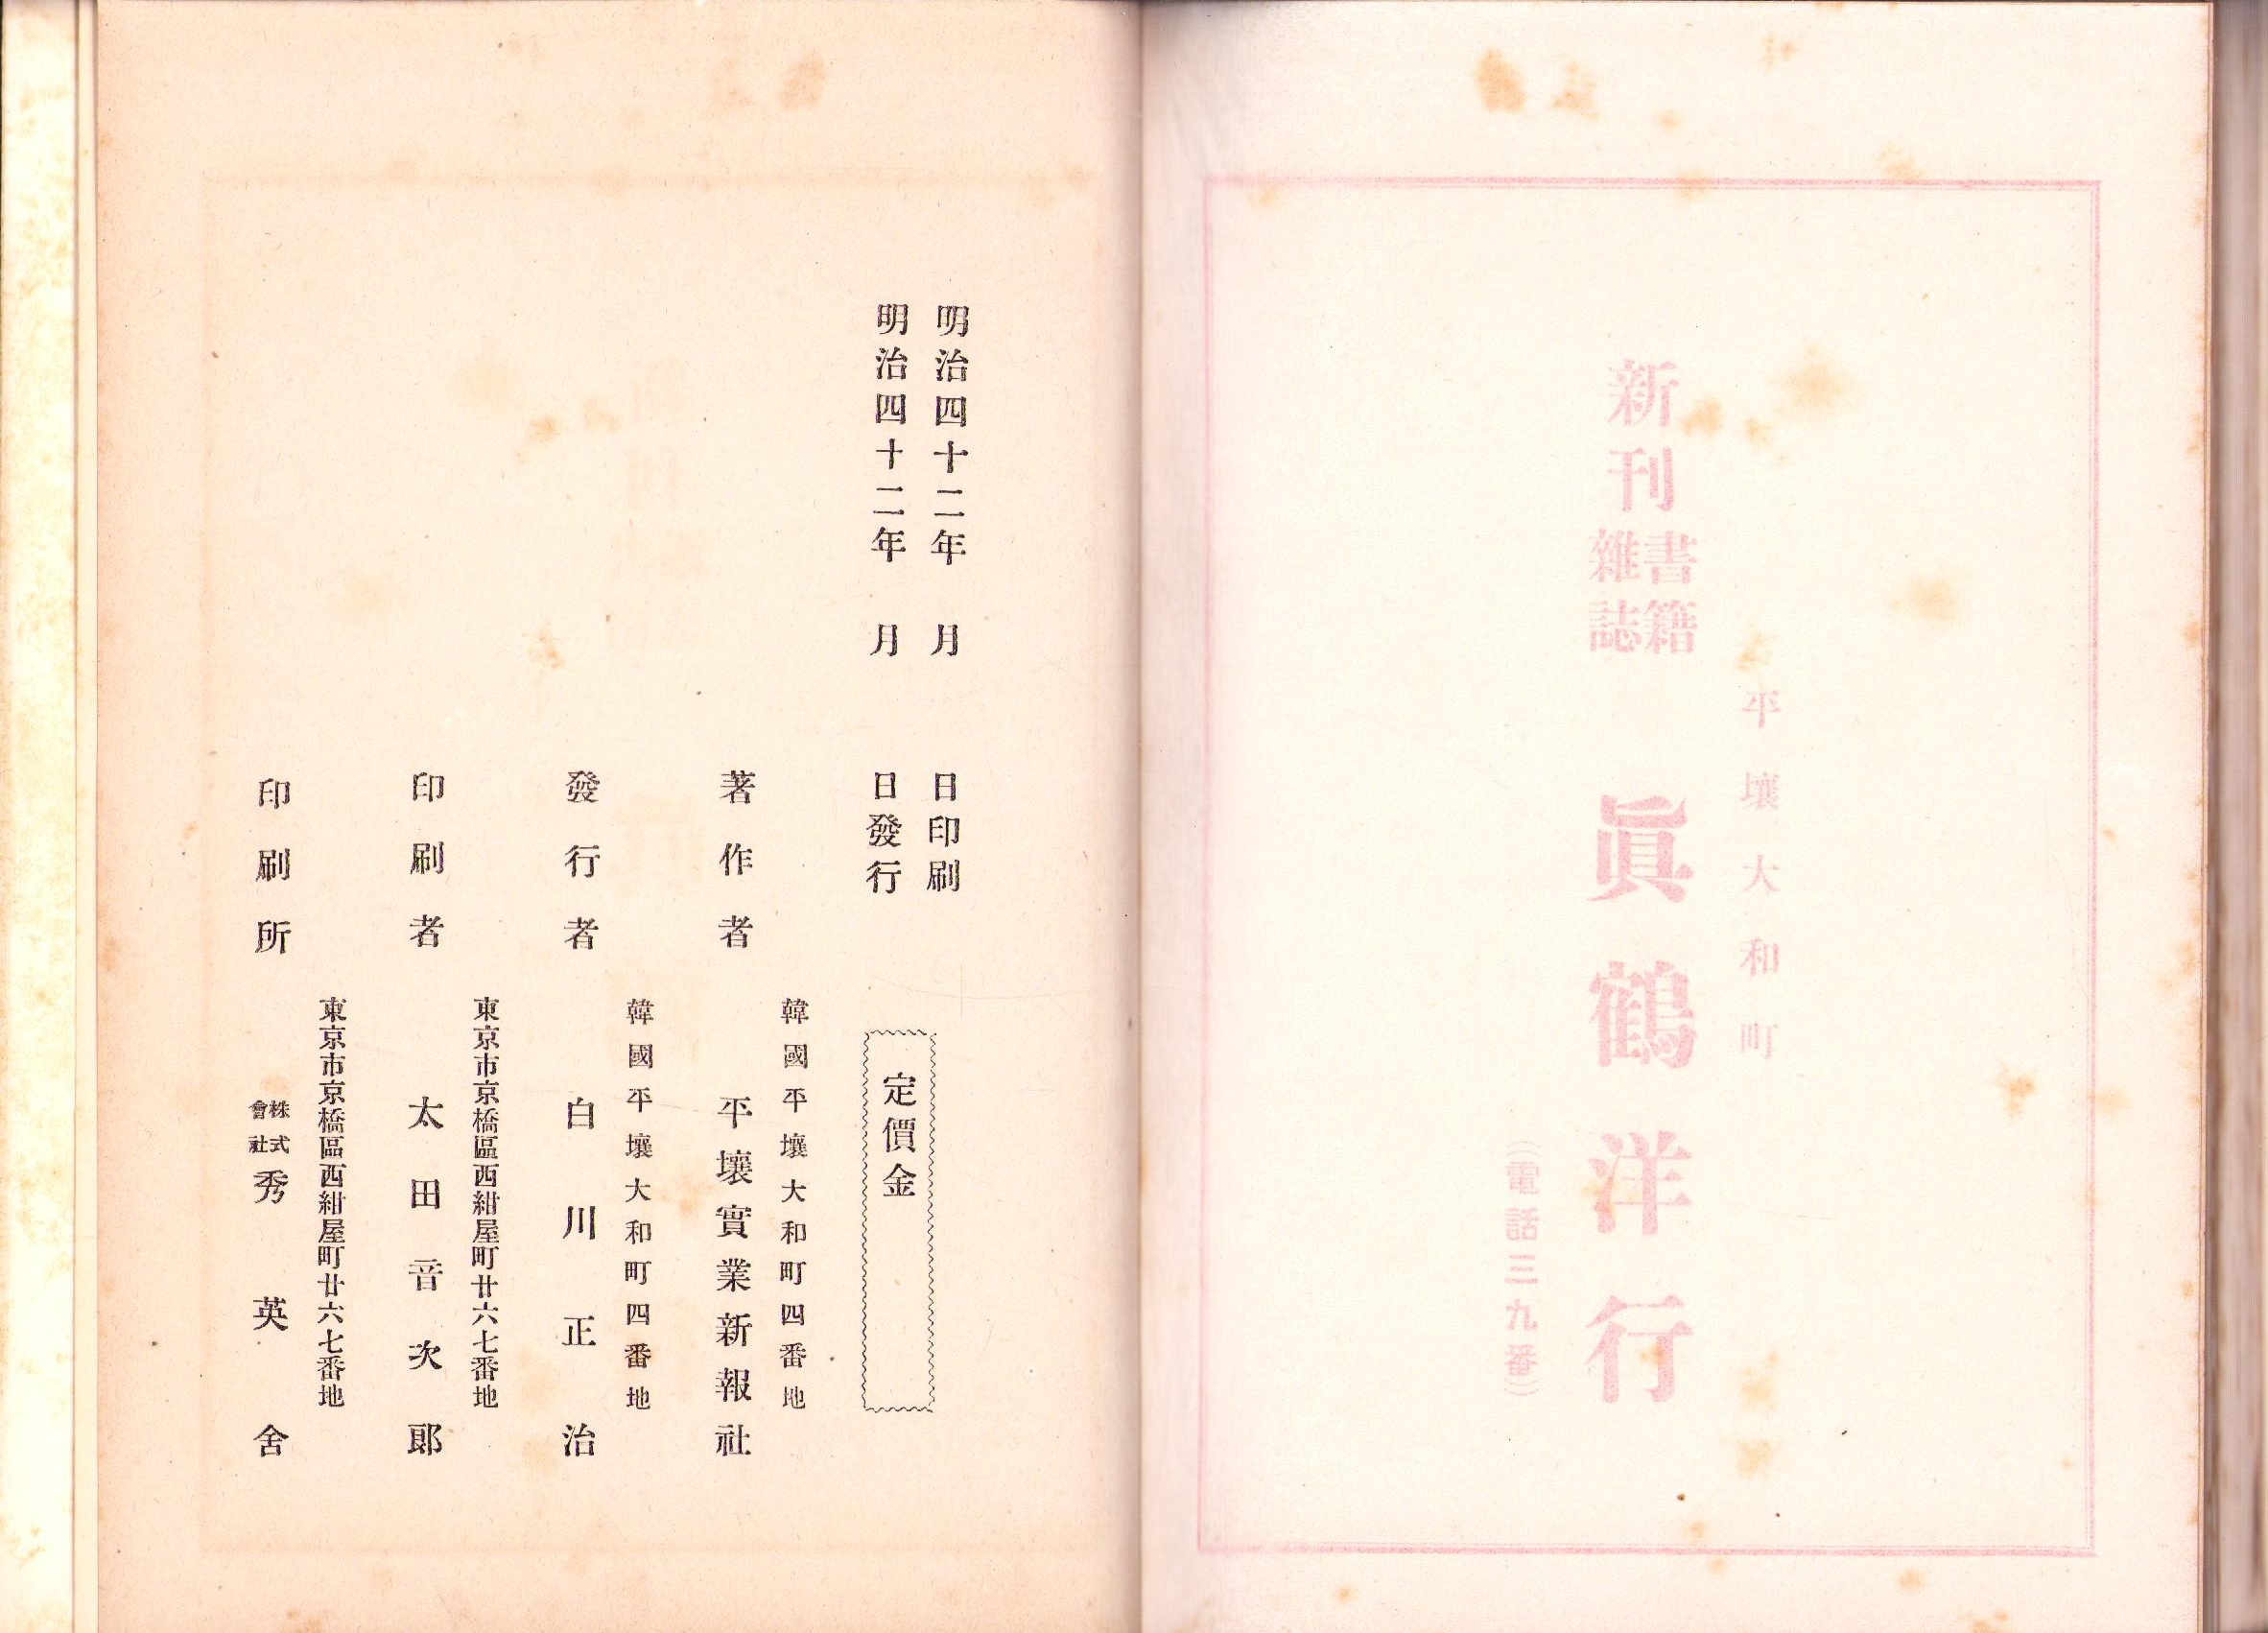 平壤大和町
新刊
書籍
雜誌
眞鶴洋行
(電話三九番)
明治四十二年　月　日印刷
明治四十二年　月　日發行
定價金
韓國平壤大和町四番地
著作者　平壤實業新報社
韓國平壤大和町四番地
發行者　白川正治
東京市京橋區西紺屋町廿六七番地
印刷者　太田音次郎
東京市京橋區西紺屋町廿六七番地
印刷所　株式會社　秀英舍